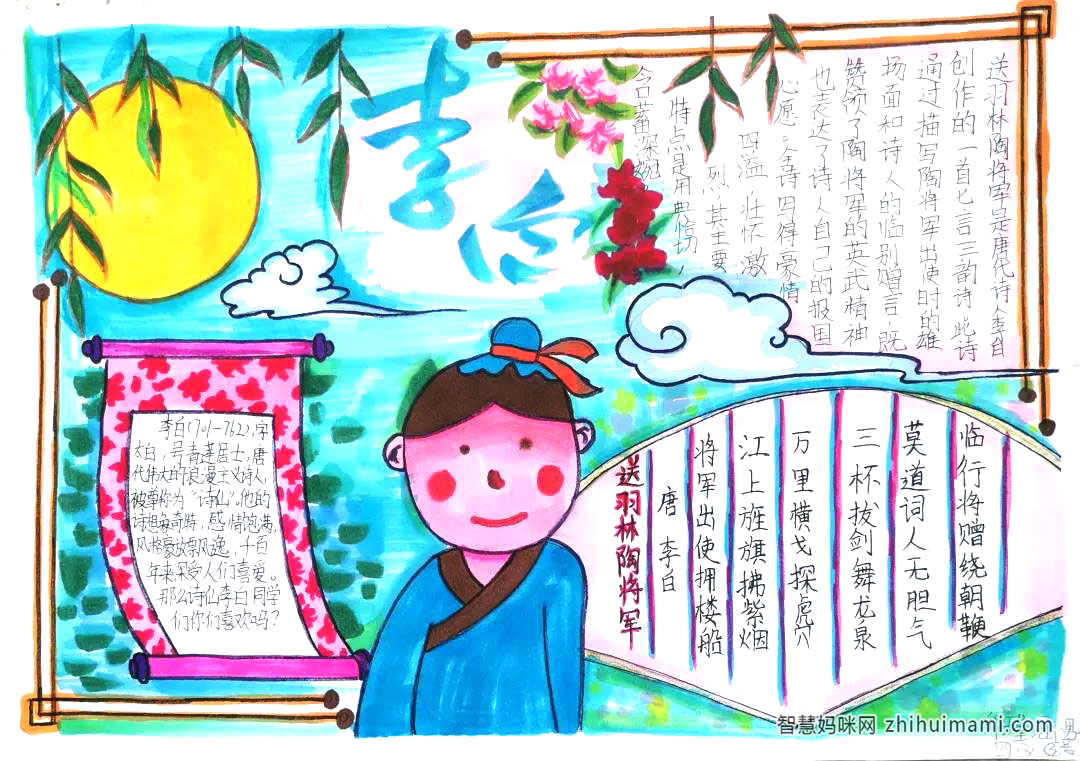 李白
送羽林陶将军是唐代诗人李白
创作的一首七言三韵诗。此诗
通过描写陶将军出使时的雄
扬面和诗人的临别赠言,既
赞领了陶将军的英武精神
也表达了诗人自己的报国
心愿。全诗写得豪情
四溢,壮怀激
烈,其主要
特点是用典恰切,
含蓄深婉
李白(701-762),字
太白,号青莲居士,唐
代伟大的浪漫主义诗人,
被尊称为“诗仙”,他的
诗想象奇特,感情饱满,
风格豪放飘逸,千百
年来深受人们喜爱。
那么诗仙李白同学
们你们喜欢吗?
送羽林陶将军
唐 李白
将军出使拥楼船
江上旌旗拂紫烟
万里横戈探虎穴
三杯拔剑舞龙泉
莫道词人无胆气
临行将赠绕朝鞭
智慧妈咪网 zhihuimami.com